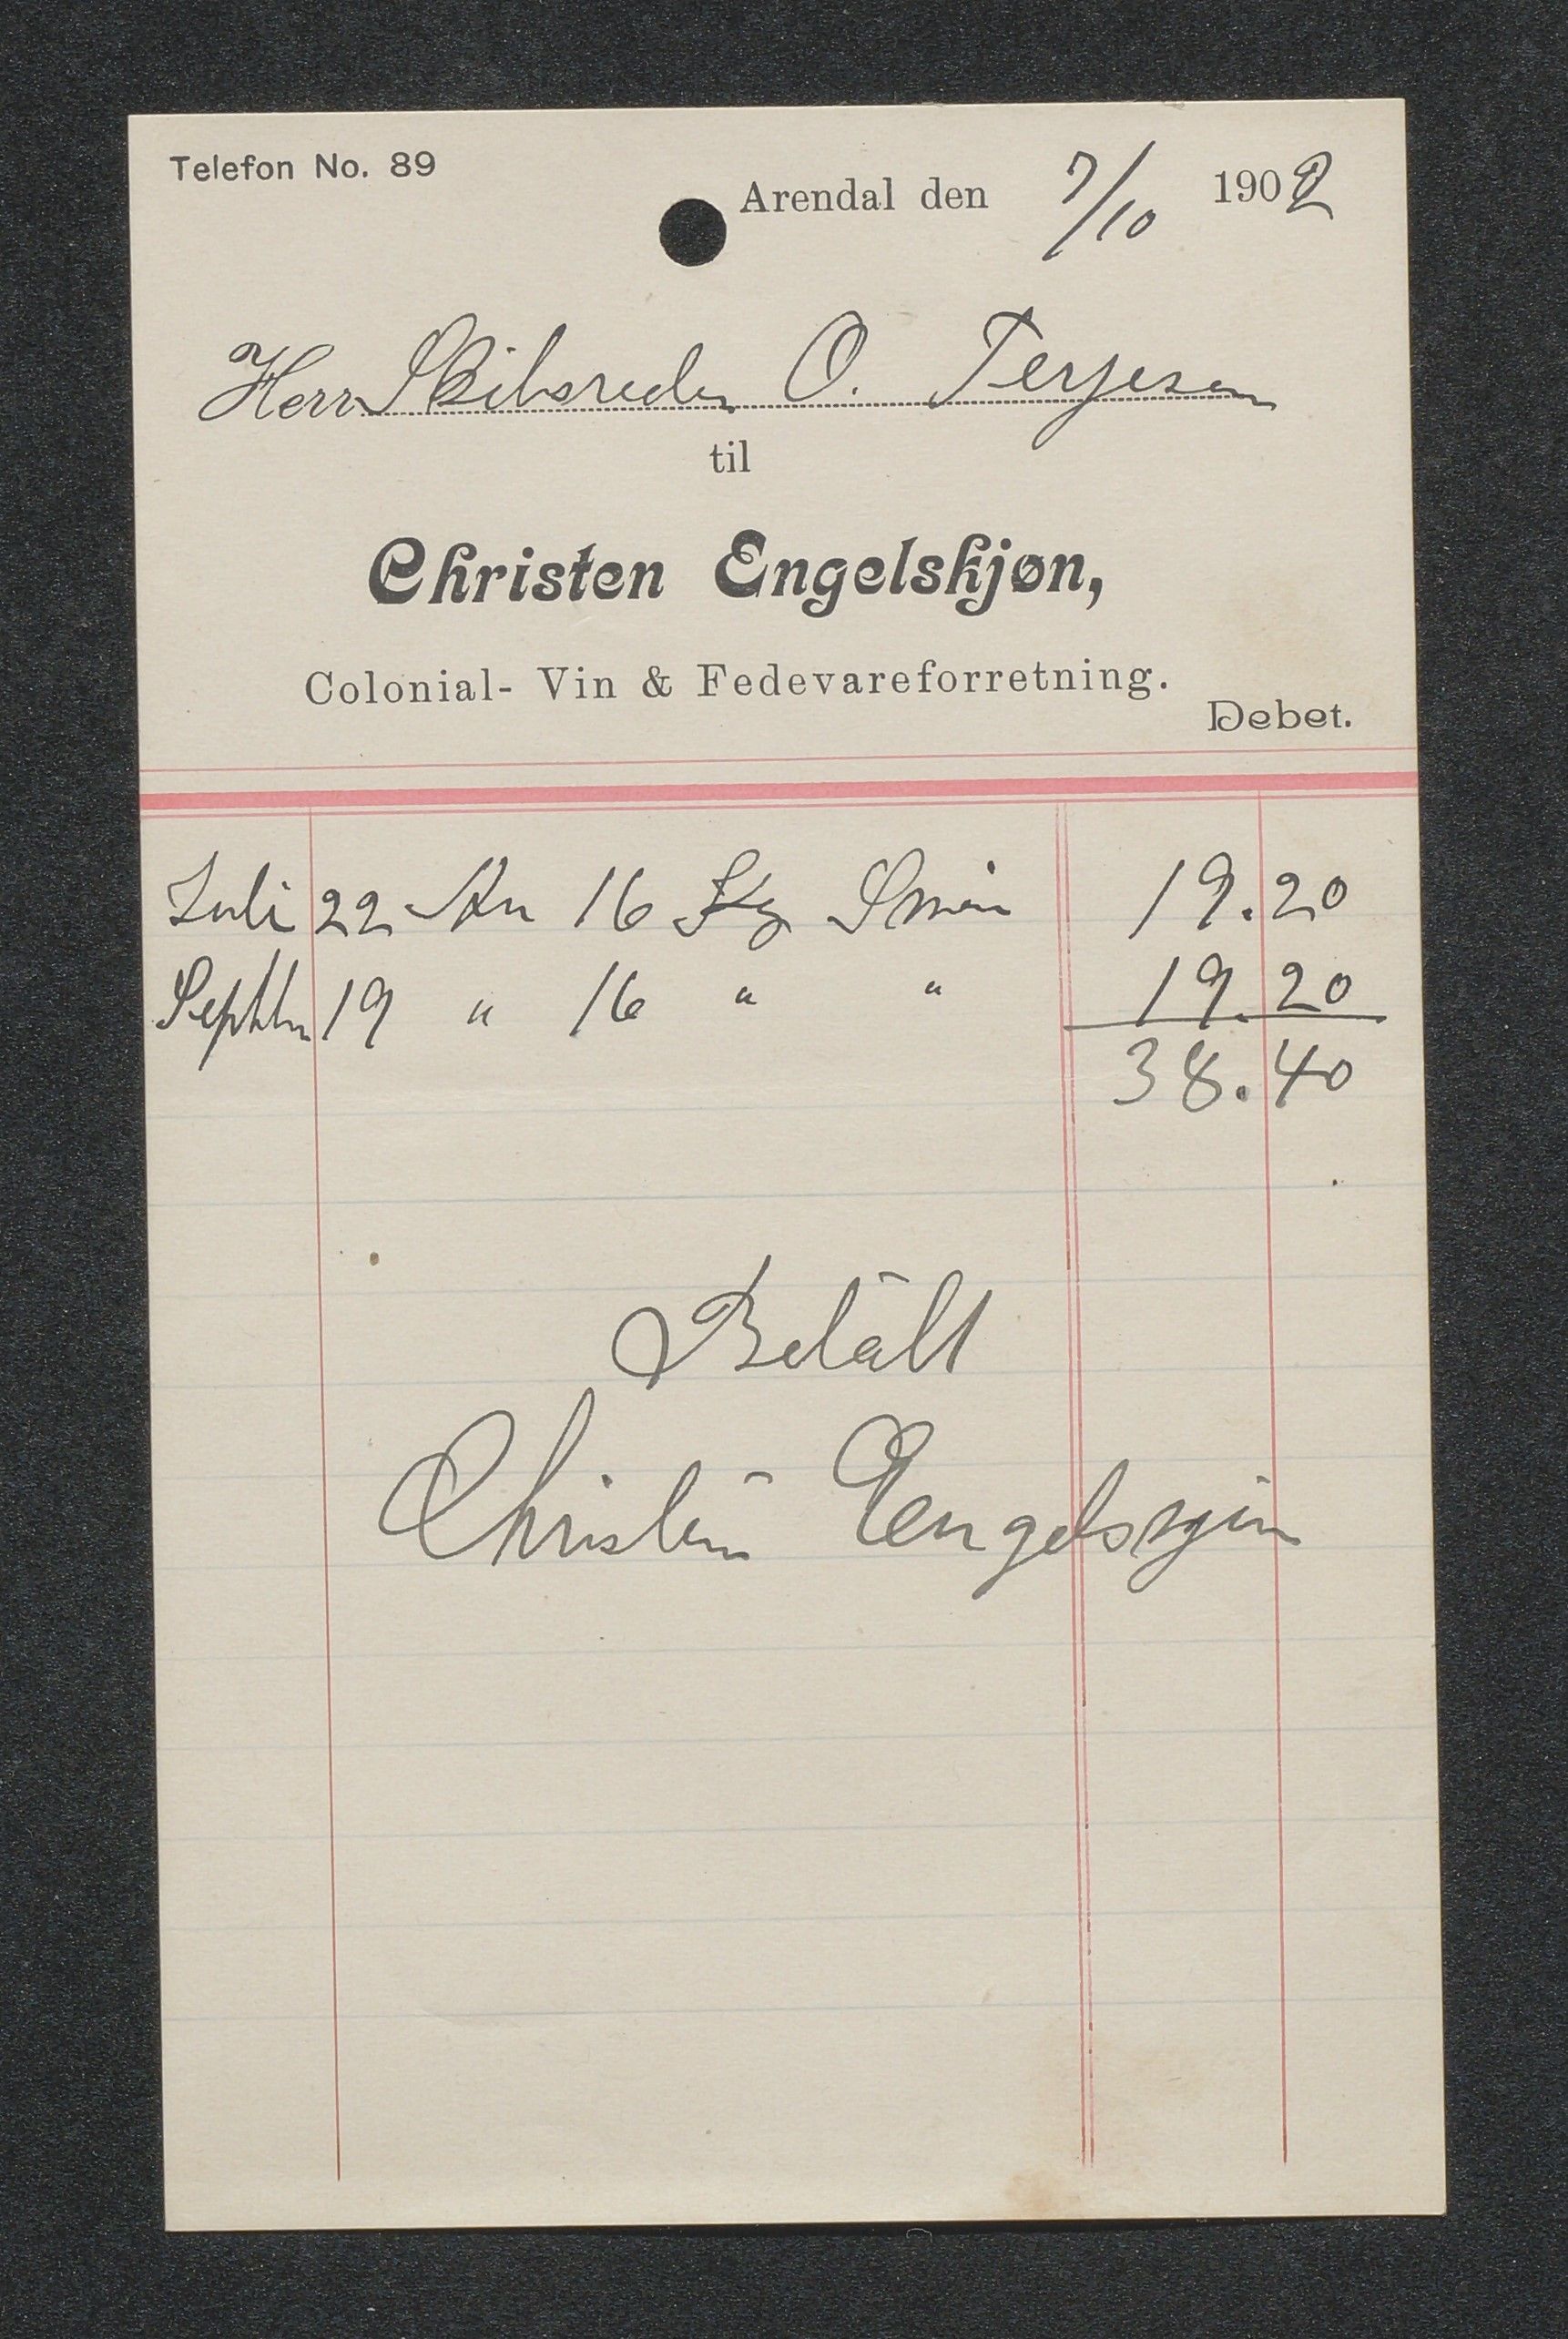 Telefon No. 89
Arendal den 7/10 1902
Herr Skibsreder O. Terjesen
til
Christen Engelskjøn,
Colonial- Vin & Fedevareforretning.
Debet.
Juli 22 An 16 Kg Smør 19.20
Septbr 19 " 16 " " 19.20
38.40
Betalt
Christen Engelskjøn